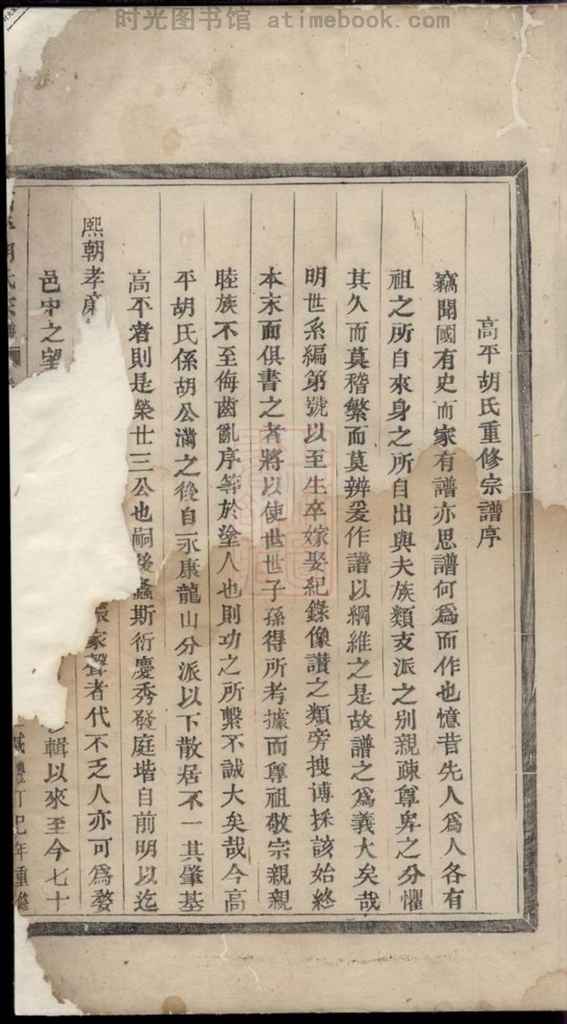 时光图书馆 atimebook.com
高平胡氏重修宗譜序
竊聞國有史而家有譜亦思譜何爲而作也憶昔先人爲人各有
祖之所自來身之所自出與夫族類支派之别親疎尊卑之分懼
其久而莫稽繁而莫辨爰作譜以綱維之是故譜之爲義大矣哉
明世系編第號以至生卒嫁娶紀錄像讚之類旁搜博採該始終
本末而俱書之者將以使世世子孫得所考據而尊祖敬宗親親
睦族不至侮齒亂序等於塗人也則功之所繫不誠大矣哉今高
平胡氏係胡公滿之後自永康龍山分派以下散居不一其肇基
高平者則是榮廿三公也嗣後螽斯衍慶秀發庭堦自前明以迄
熙朝孝家聲者代不乏人亦可爲婺
邑中之望輯以來至今七十
胡氏宗豐丁巳年重修